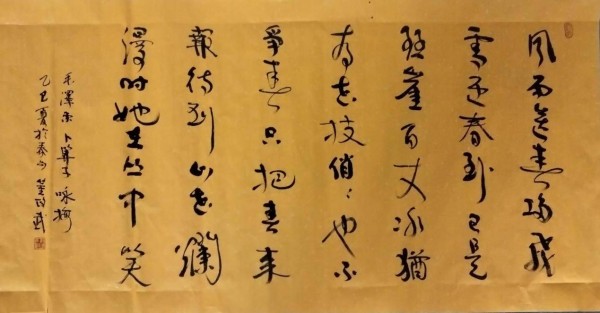 风雨送春归飛
雪迎春到已是
悬崖百丈冰猶
有花枝俏〻也不
爭春只把春来
報待到山花爛
漫时她在丛中笑
毛澤东 卜算子 咏梅
乙巳夏於泰山